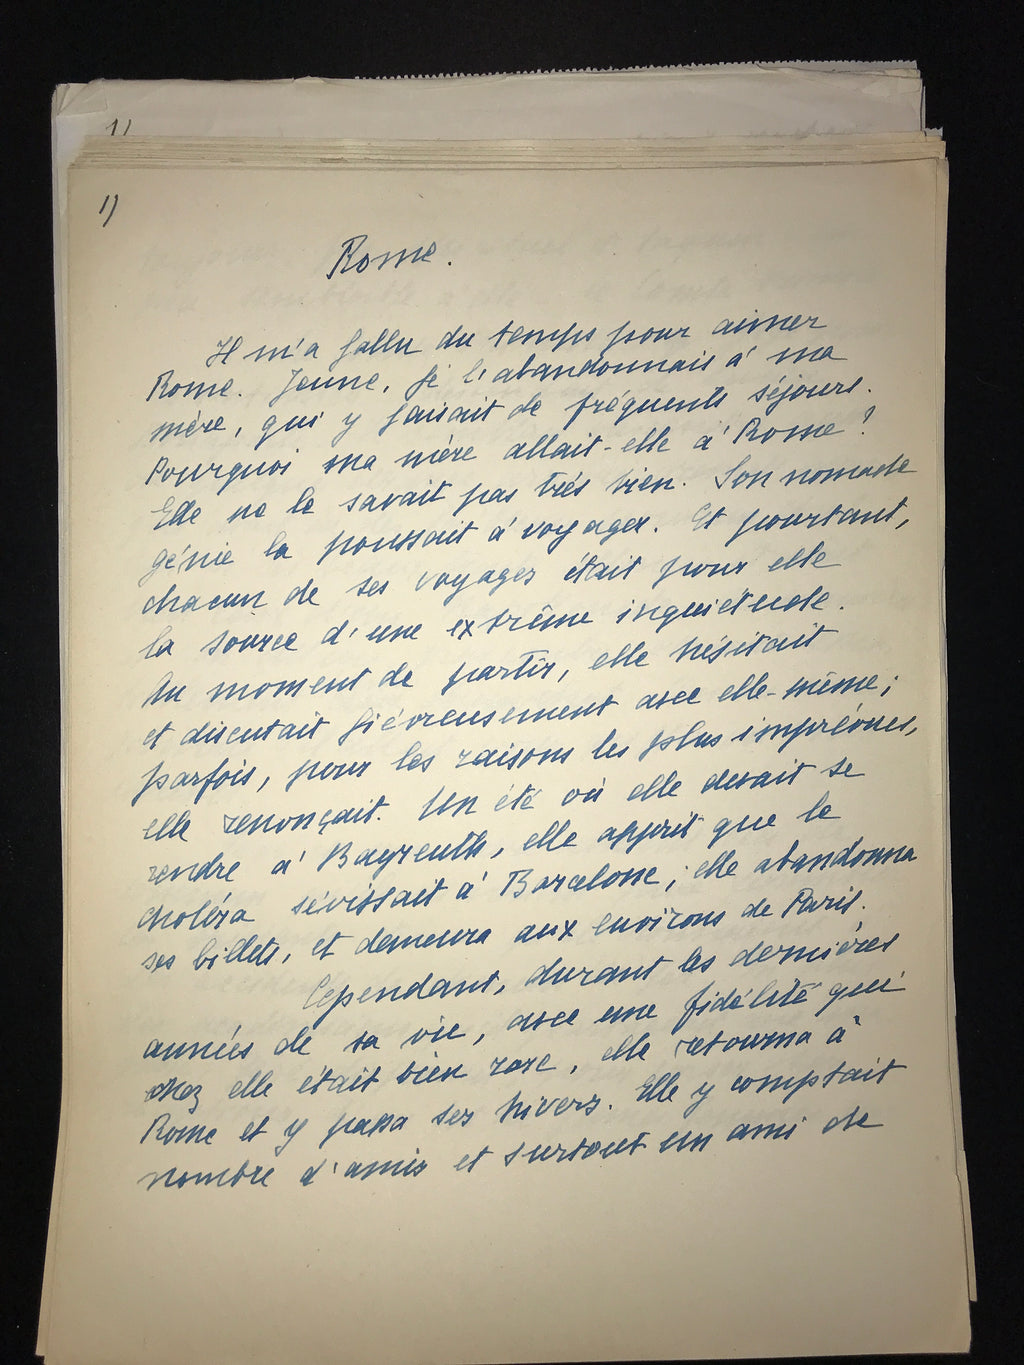 1)
1)
Rome.
Il m'a fallu du temps pour aimer
Rome. Jeune, je l'abandonnais à ma
mère, qui y faisait de fréquents séjours.
Pourquoi ma mère allait-elle à Rome ?
Elle ne le savait pas très bien. Son nomade
génie la poussait à voyager. Et pourtant,
chacun de ses voyages était pour elle
la source d'une extrême inquiétude.
Au moment de partir, elle hésitait
et discutait fiévreusement avec elle-même ;
parfois, pour les raisons les plus imprévues,
elle renonçait. Un été où elle devait se
rendre à Bayreuth, elle apprit que le
choléra sévissait à Barcelone ; elle abandonna
ses billets, et demeura aux environs de Paris.
Cependant, durant les dernières
années de sa vie, avec une fidélité qui
chez elle était bien rare, elle retourna à
Rome et y passa ses hivers. Elle y comptait
nombre d'amis et surtout un ami de